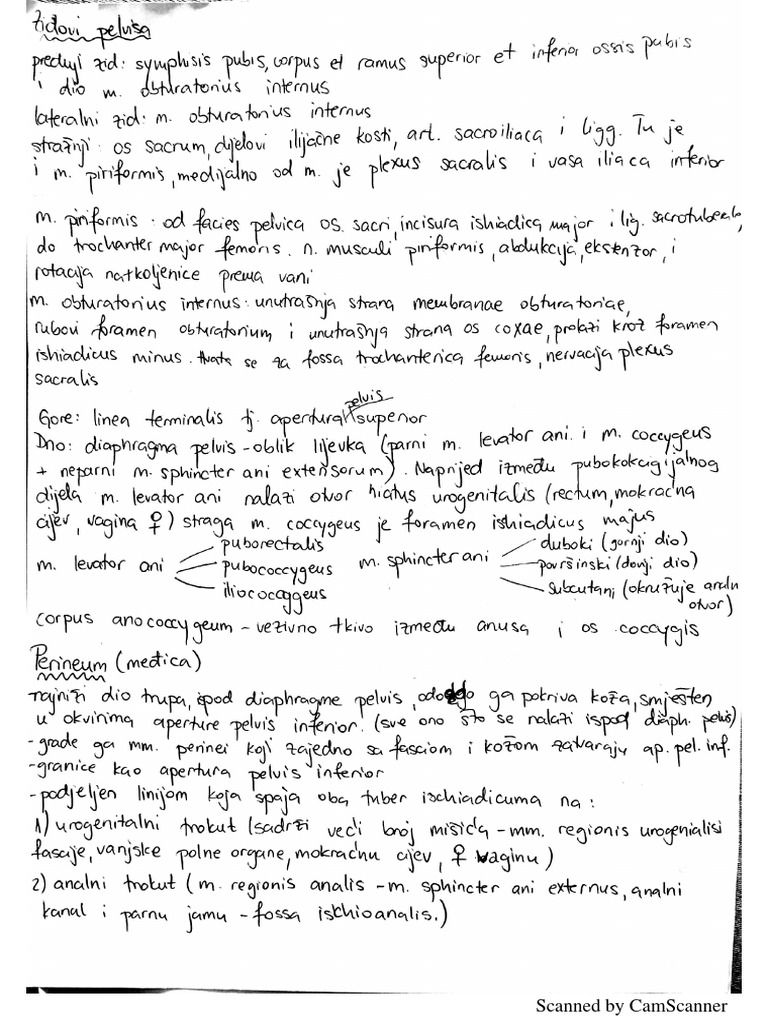 Zidovi pelvisa
prednji zid: symphisis pubis, corpus et ramus superior et inferior ossis pubis
i dio m. obturatorius internus
lateralni zid: m. obturatorius internus
stražnji: os sacrum, dijelovi ilijačne kosti, art. sacroiliaca i ligg. Tu je
i m. piriformis, medijalno od m. je plexus sacralis i vasa iliaca inferior
m. piriformis: od facies pelvica os. sacri, incisura ishiadica major i lig. sacrotuberale,
do trochanter major femoris. n. musculi piriformis, abdukcija, ekstenzor, i
rotacija natkoljenice prema vani
m. obturatorius internus: unutrašnja strana membranae obturatoriae,
rubovi foramen obturatorium i unutrašnja strana os coxae, prolazi kroz foramen
ishiadicus minus. hvata se za fossa trochanterica femoris, nervacija plexus
sacralis
Gore: linea terminalis tj. apertura pelvis superior
Dno: diaphragma pelvis - oblik lijevka (parni m. levator ani. i m. coccygeus
+ neparni m. sphincter ani extensorum). Naprijed između pubokokcigijalnog
dijela m. levator ani nalazi otvor hiatus urogenitalis (rectum, mokraćna
cijev, vagina ♀) straga m. coccygeus je foramen ishiadicus majus
m. levator ani puborectalis pubococcygeus iliococcygeus
m. sphincter ani duboki (gornji dio) površinski (donji dio) subcutani (okružuje analni otvor)
corpus anococcygeum - vezivno tkivo između anusa i os coccygis
Perineum (međica)
najniži dio trupa, ispod diaphragme pelvis, odozdo ga pokriva koža, smješten
u okvirima aperture pelvis inferior. (sve ono što se nalazi ispod diaph. pelvis)
- građe ga mm. perinei koji zajedno sa fasciom i kožom zatvaraju ap. pel. inf.
- granice kao apertura pelvis inferior
- podjeljen linijom koja spaja oba tuber ischiadicuma na:
1) urogenitalni trokut (sadrži veći broj mišića - mm. regionis urogenialisi
fascije, vanjske polne organe, mokraćnu cijev, ♀ vaginu)
2) analni trokut (m. regionis analis - m. sphincter ani externus, analni
kanal i parnu jamu - fossa ischioanalis.)
Scanned by CamScanner